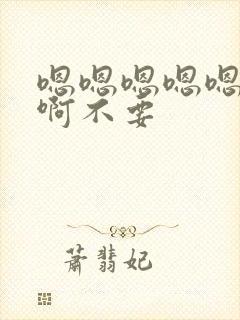 嗯嗯嗯嗯嗯
啊不要
萧翡妃